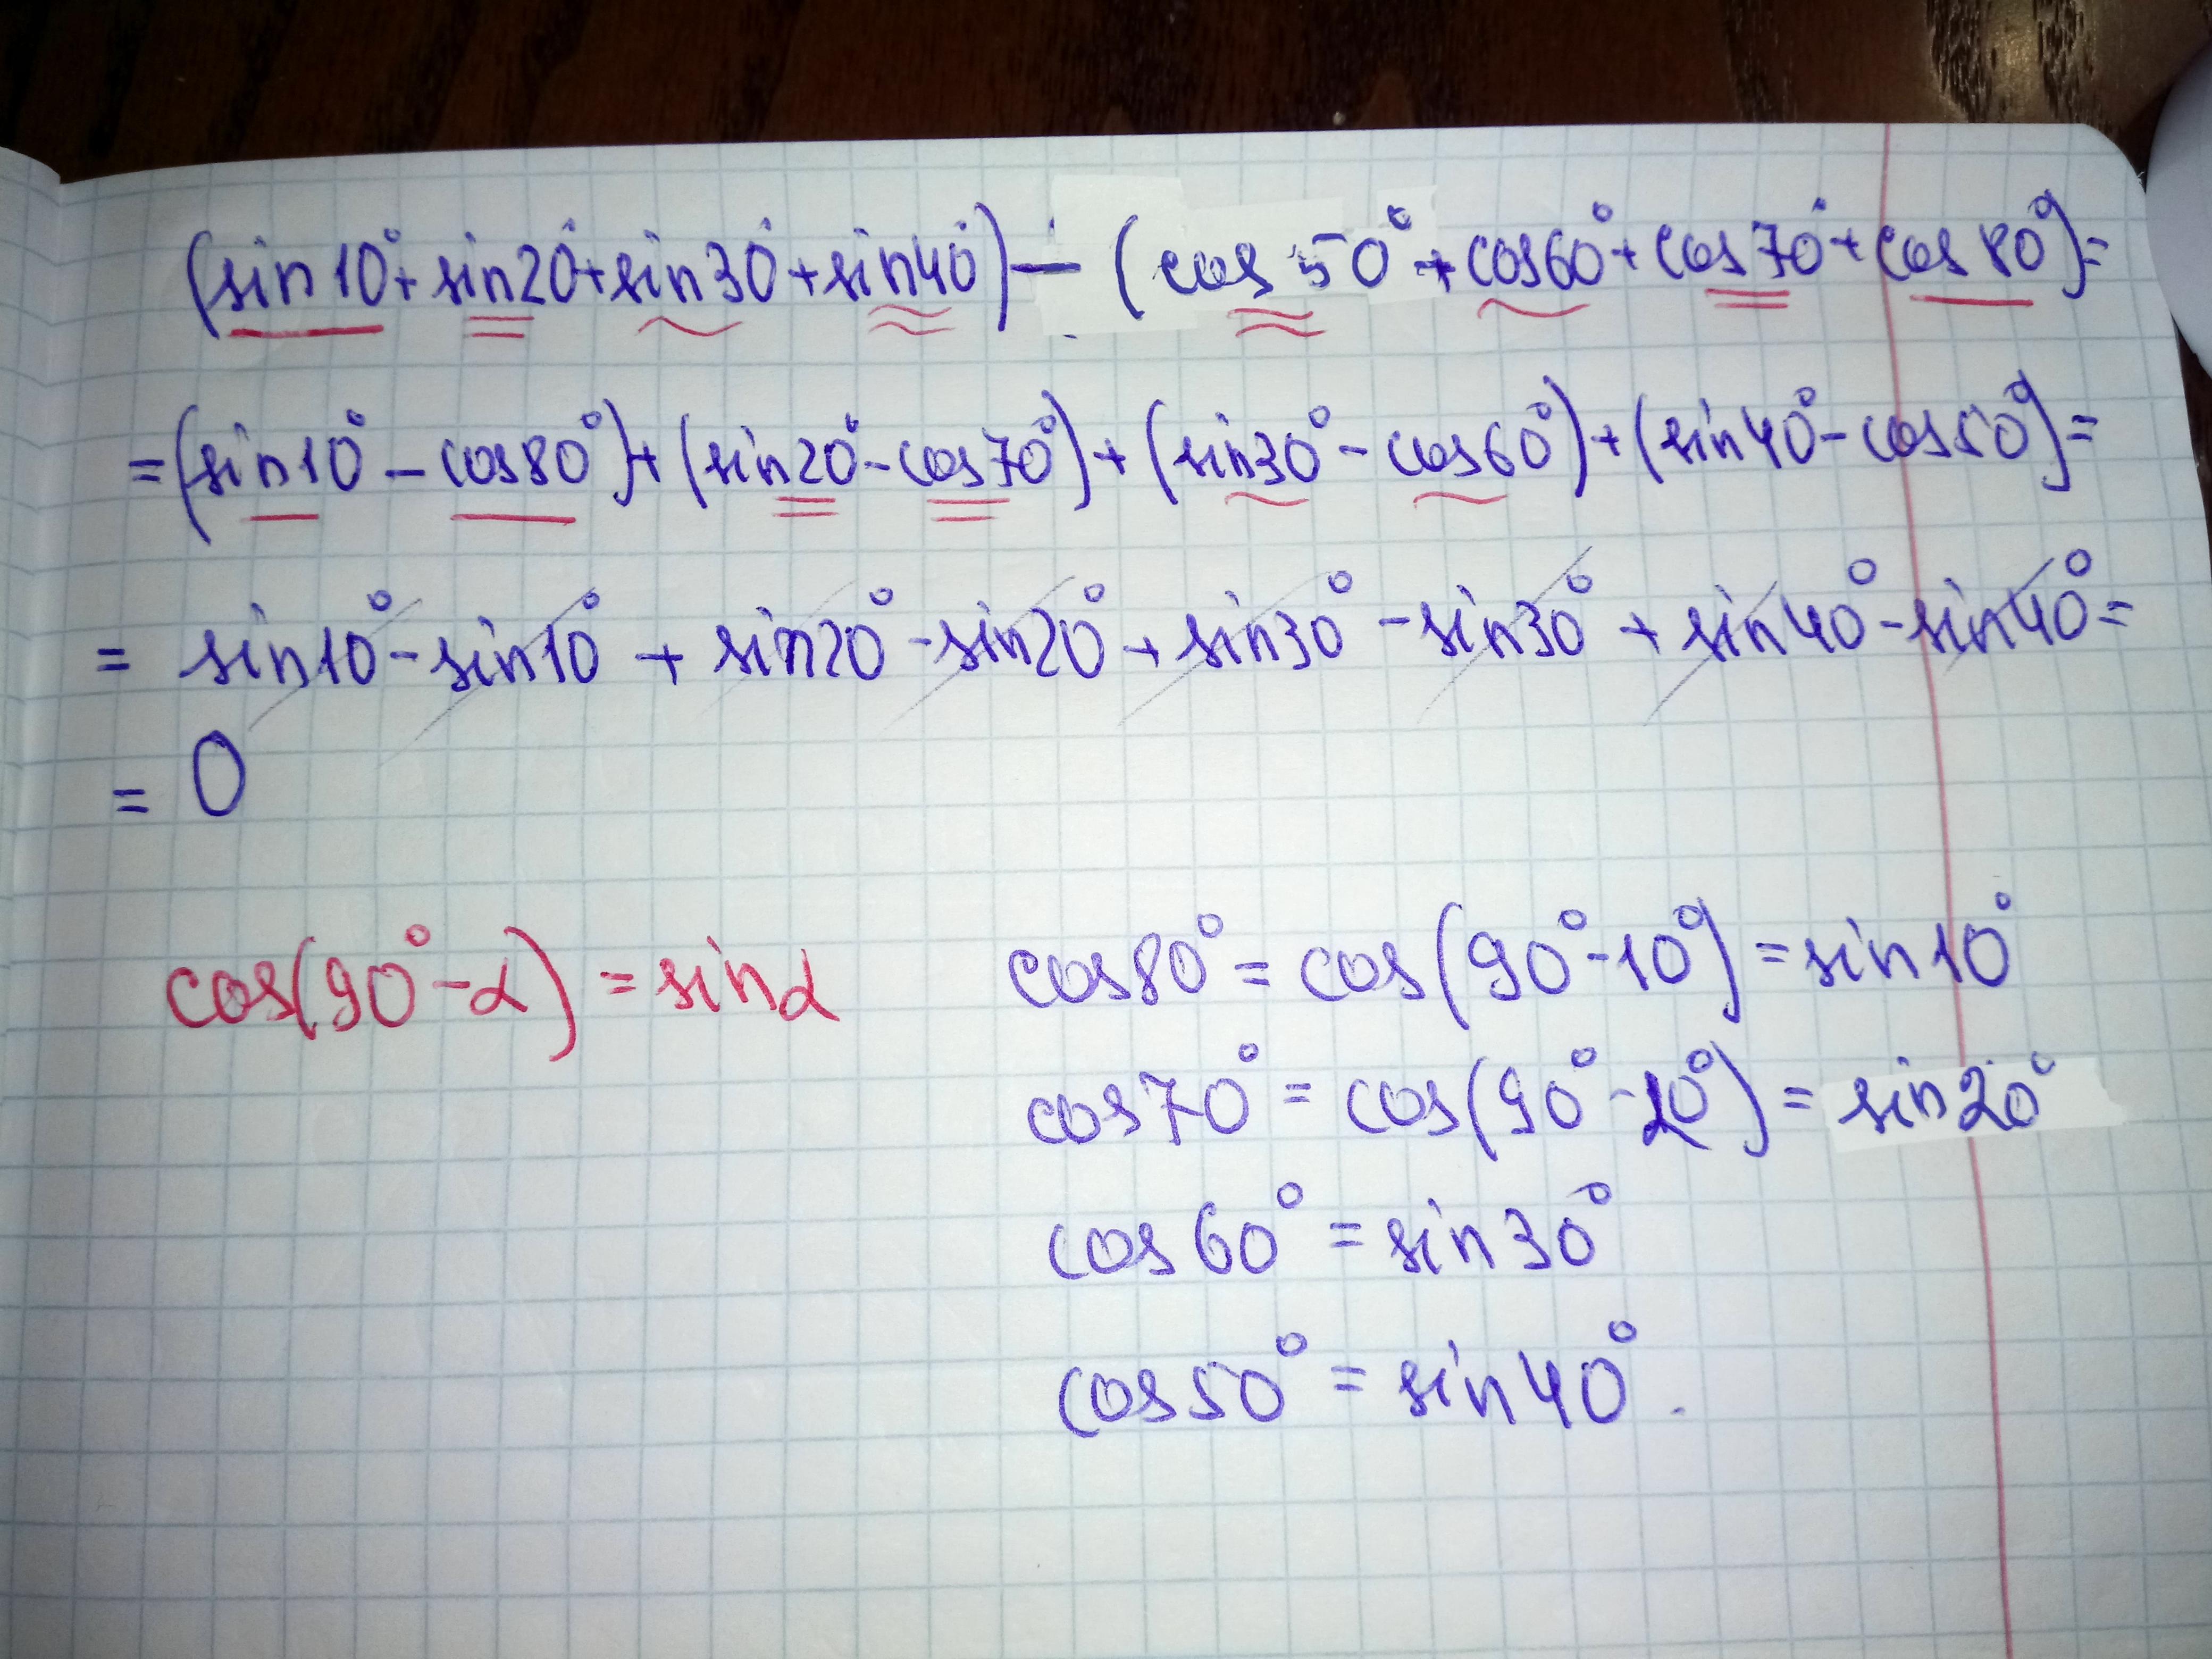 (sin10°+sin20°+sin30°+sin40°)-(cos50°+cos60°+cos70°+cos80°)=
=(sin10°-cos80°)+(sin20°-cos70°)+(sin30°-cos60°)+(sin40°-cos50°)=
=sin10°-sin10°+sin20°-sin20°+sin30°-sin30°+sin40°-sin40°=
=0
cos(90°-α)=sinα
cos80°=cos(90°-10°)=sin10°
cos70°=cos(90°-20°)=sin20°
cos60°=sin30°
cos50°=sin40°.